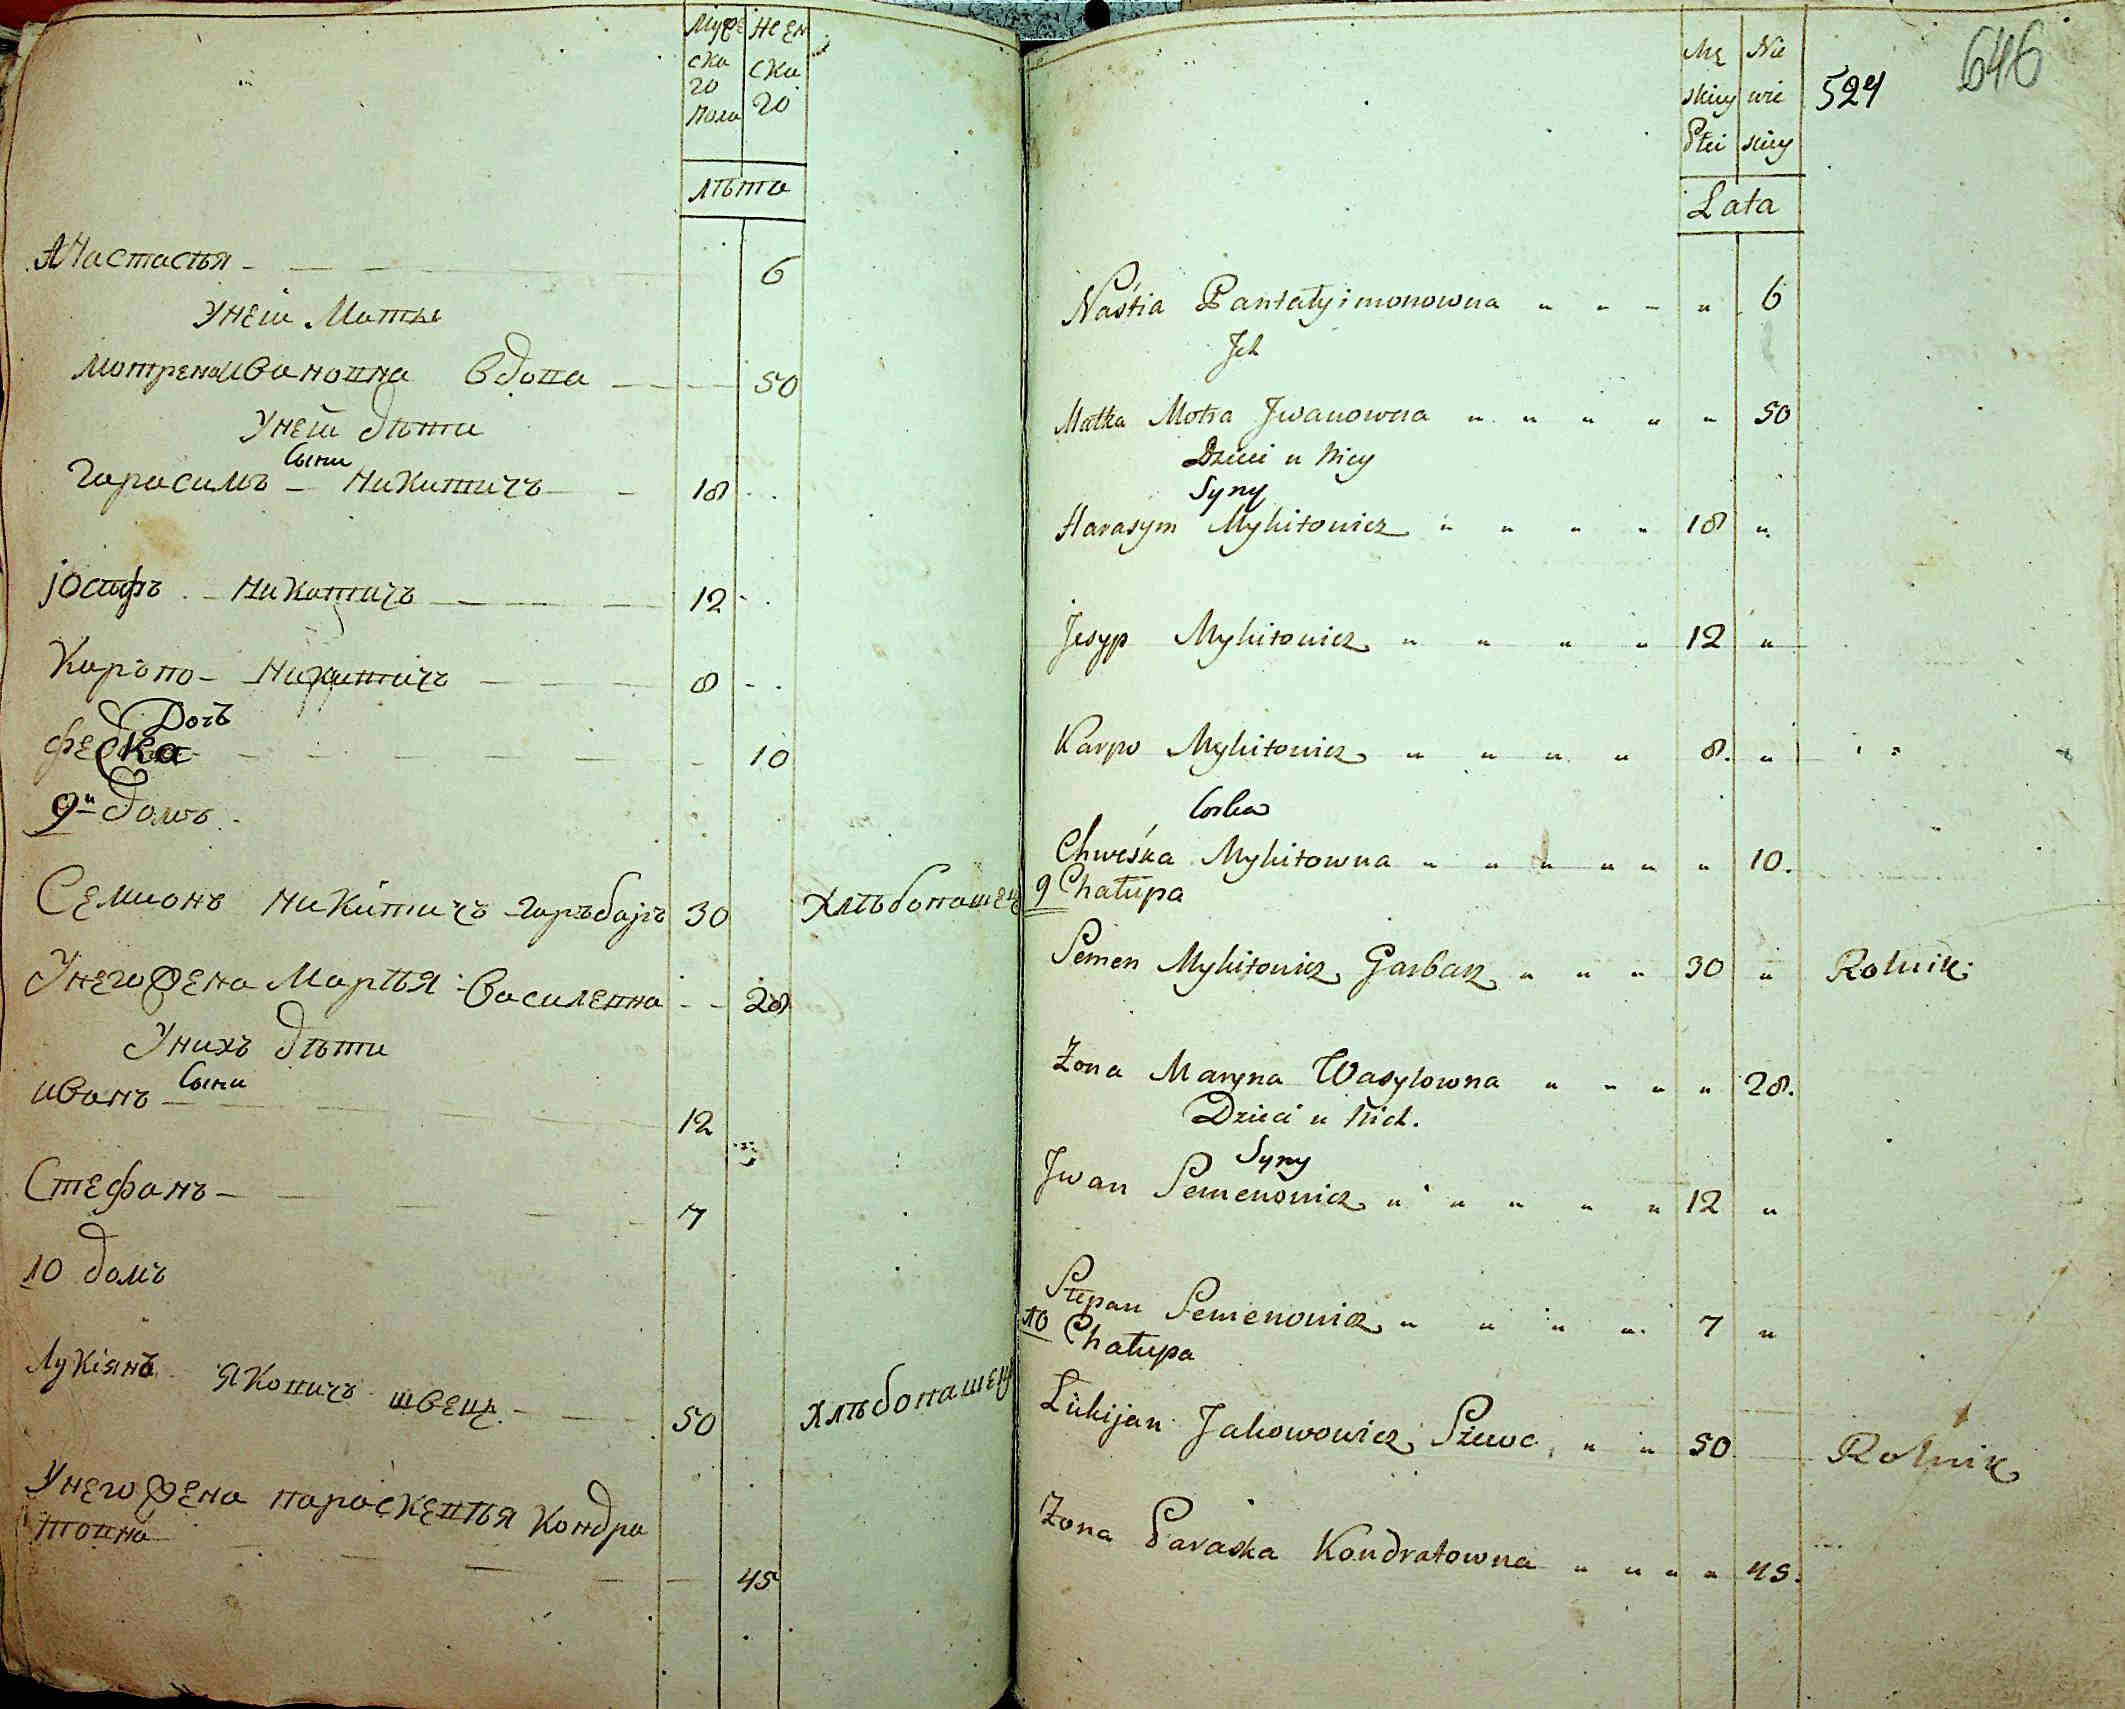 Муже
ска
го
Пола
Женс
ска
го
Лѣта
Анастасія 6
У неи Мать
Мотрена Ивановна Вдова 50
У неи дѣти
Сыни
Гарасимъ Никитичъ 18
Іосифъ Никитичъ 12
Каръпо Никитичъ 8
Дочъ
Феска 10
9й домъ
Семионъ Никитичъ Гаръбаръ 30 Хлѣбопашец
У него жена Марія Василевна 28
У нихъ дѣти
Сыни
Иванъ 12
Стефанъ 7
10 домъ
Лукіянъ Яковичъ швецъ 50 Хлѣбопашец
У него жена Параскевія Кондра
товна 45
646
524
Mę
skiey
Płci
Nie
wie
skiey
Lata
Naśtia Pantałyimonowna " " " " 6
Ich
Matka Motra Jwanowna " " " " " 50
Dzieci u Niey
Syny
Harasym Mykitowicz " " " " 18 "
Jesyp Mykitowicz " " " " 12 "
Karpo Mykitowicz " " " " 8. "
Corka
Chweśka Mykitowna " " " " " " 10.
9 Chałupa
Semen Mykitowicz Garbarz " " " 30 " Rolnik
Żona Maryna Wasylowna " " " " 28.
Dzieci u Nich.
Syny
Jwan Semenowicz " " " " " 12 "
Stepan Semenowicz " " " " 7 "
10 Chałupa
Lukijan Jakowowicz Szewc " " 50 Rolnik
Żona Paraska Kondratowna " " " " 45.